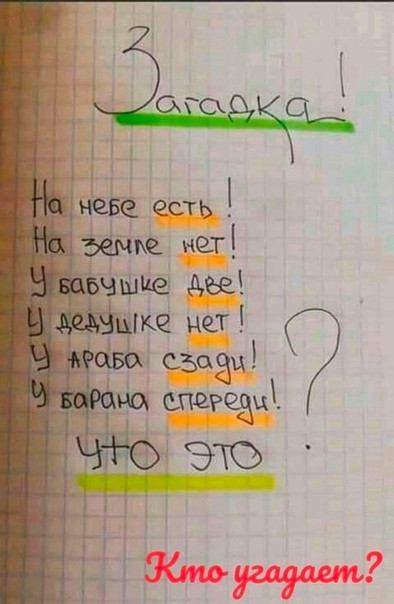 Загадка!
На небе есть!
На земле нет!
У бабушке две!
У дедушке нет!
У араба сзади!
У барана спереди!
?
Что это
Кто угадает?